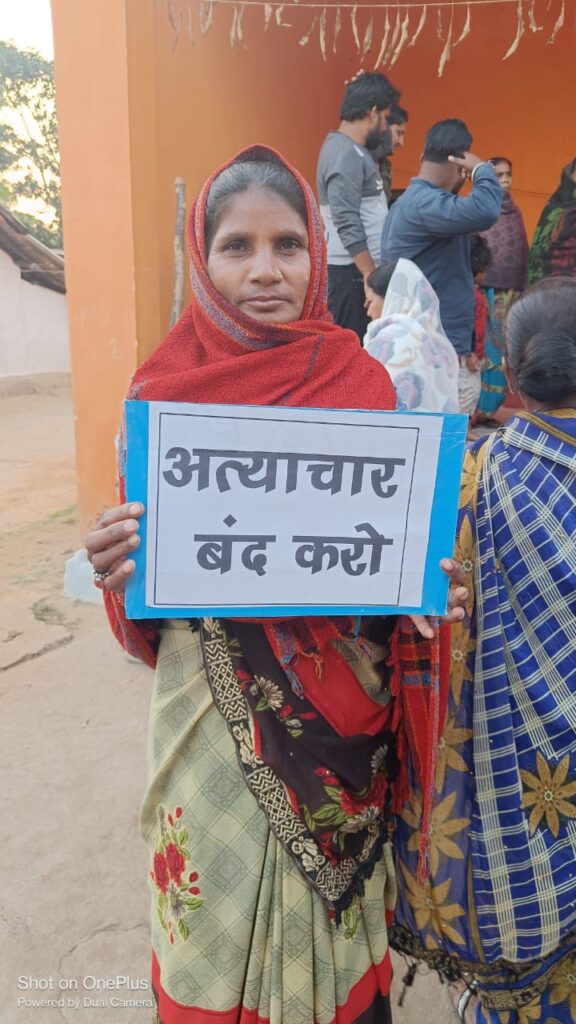 अत्याचार
बंद करो
Shot on OnePlus
Powered by Dual Camera